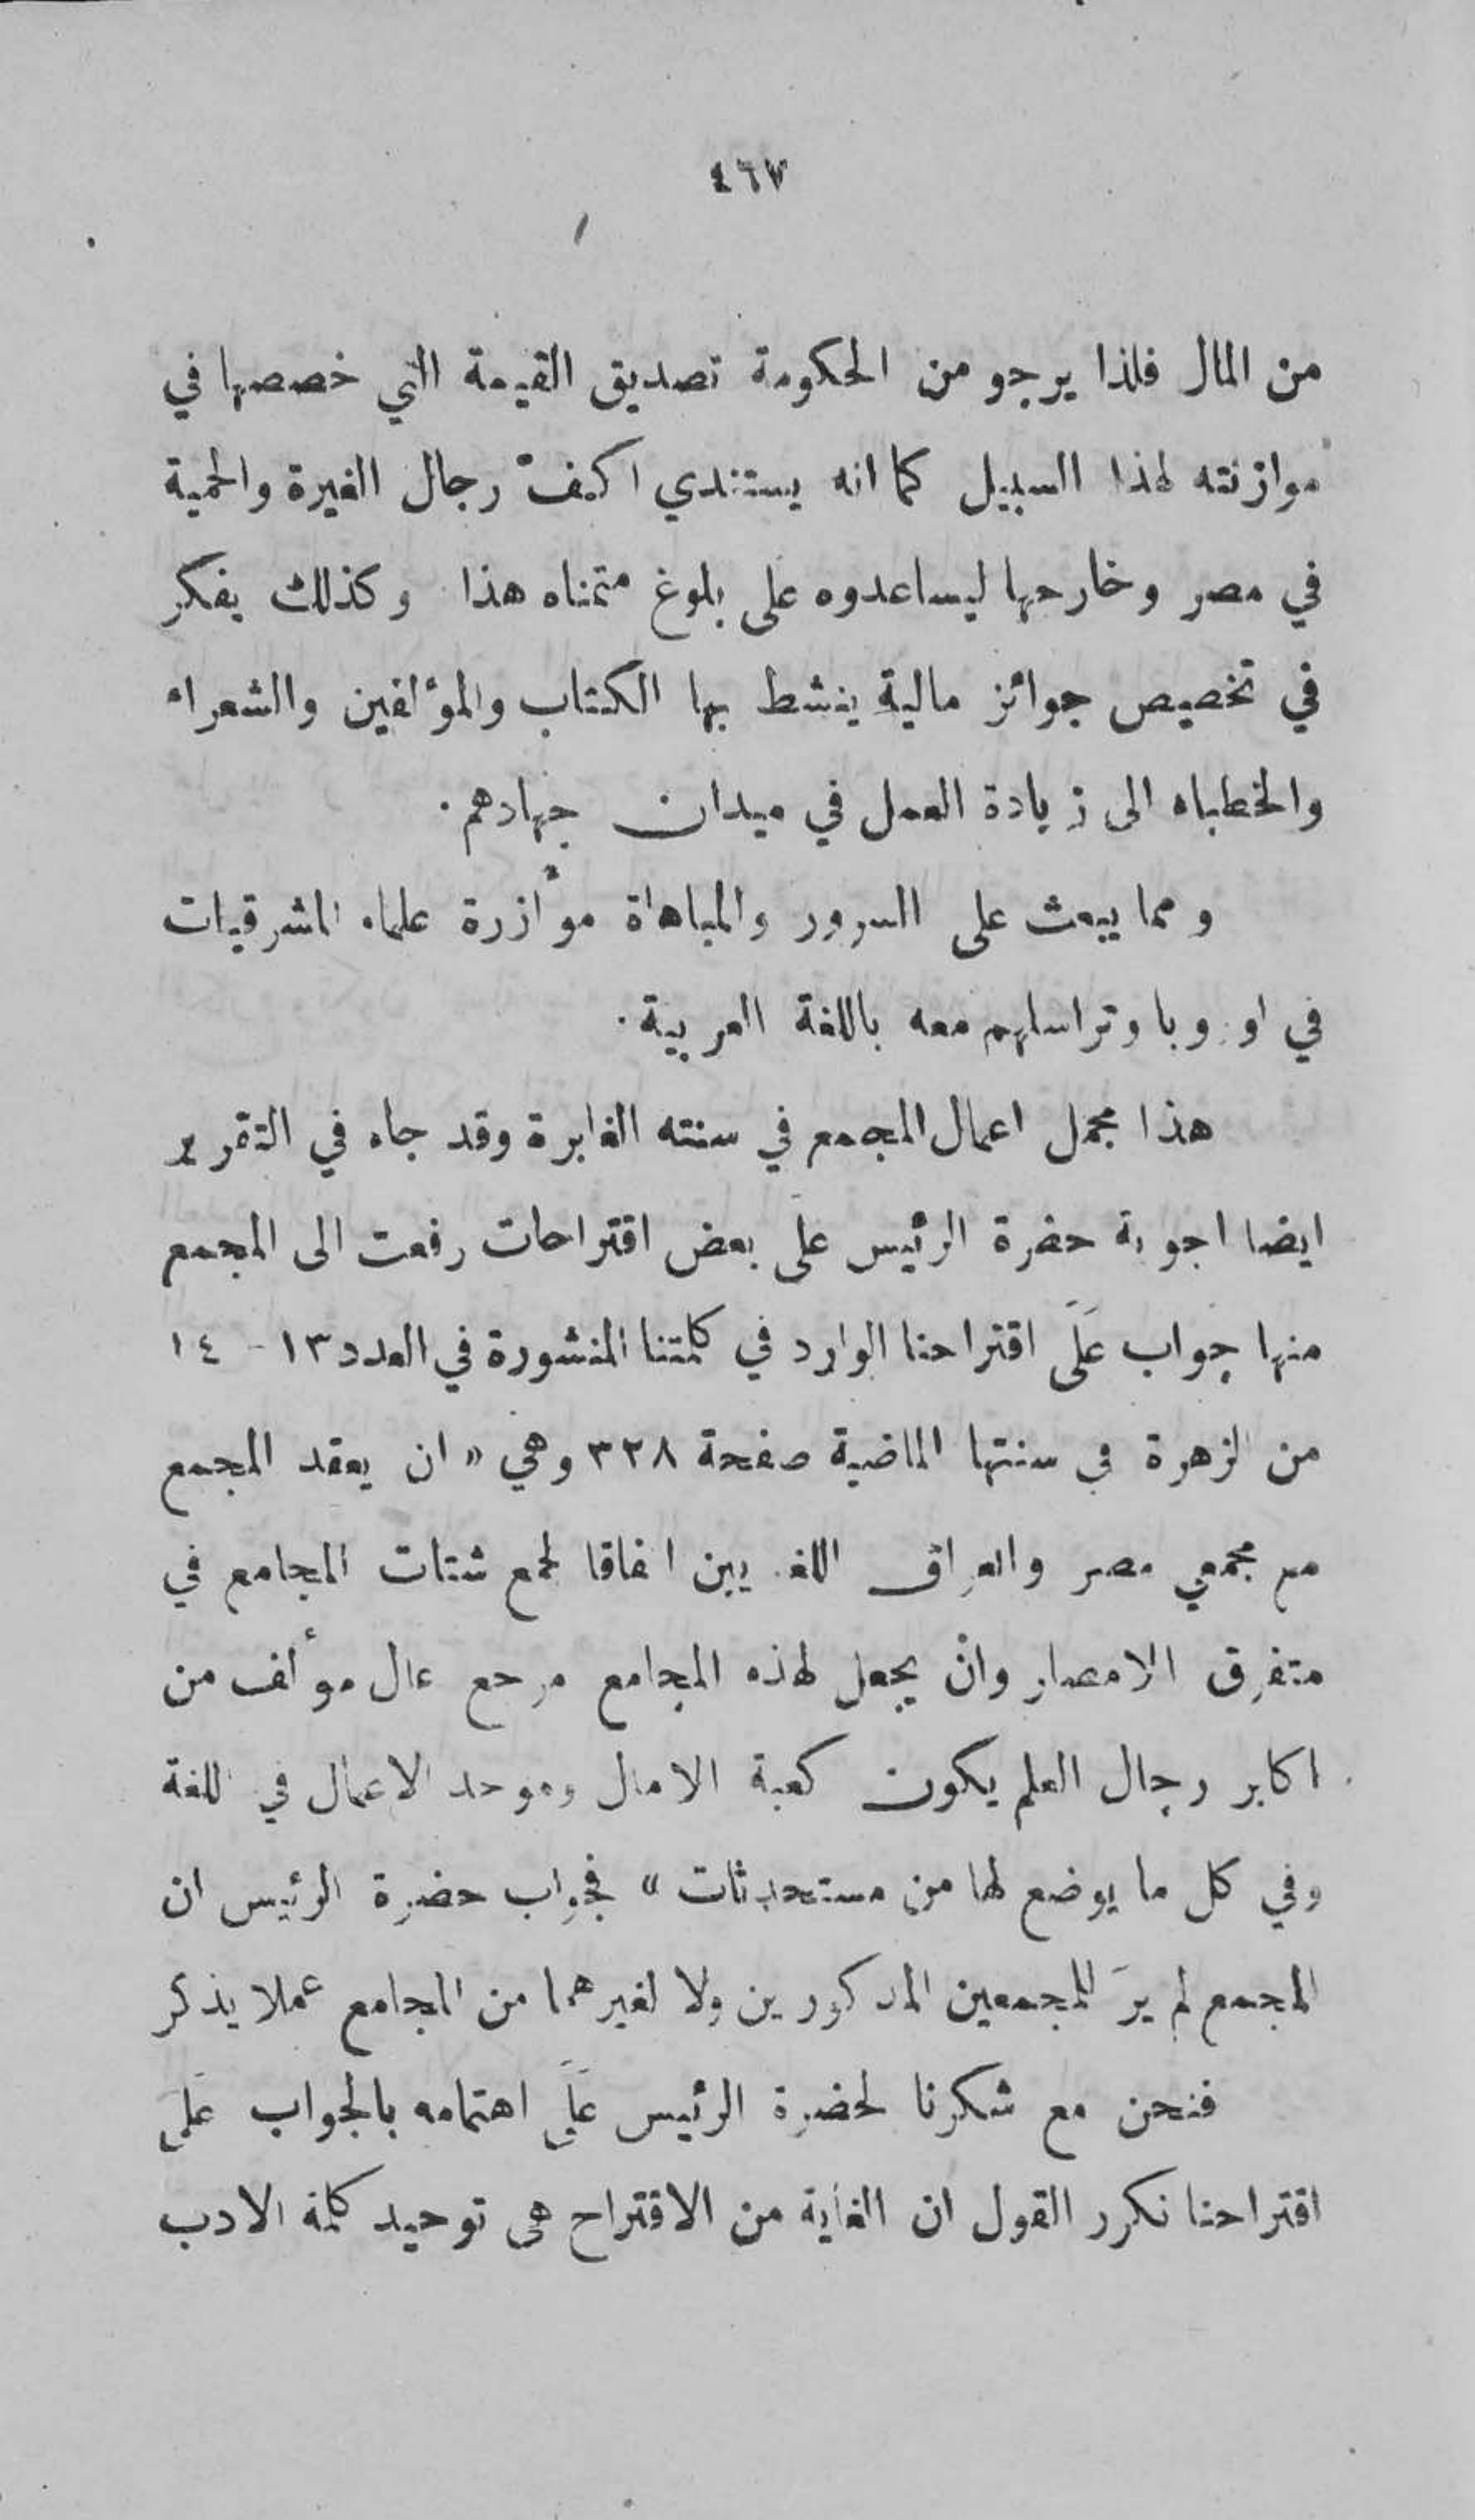 ٤٦٧
من المال فلذا يرجو من الحكومة تصديق القيمة التي خصصها في
موازنته لهذا السبيل كما انه يستندي اكف رجال الغيرة والحمية
في مصر وخارجها ليساعدوه على بلوغ متمناه هذا وكذلك يفكر
في تخصيص جوائز مالية ينشط بها الكتاب والمؤلفين والشعراء
والخطباء الى زيادة العمل في ميدان جهادهم.
ومما يبعث على السرور والمباهاة موأزرة علماء المشرقيات
في اوروبا وتراسلهم معه باللغة العربية.
هذا مجمل اعمال المجمع في سنته الغابرة وقد جاء في التقرير
ايضا اجوبة حضرة الرئيس على بعض اقتراحات رفعت الى المجمع
منها جواب عَلَى اقتراحنا الوارد في كلمتنا المنشورة في العدد ١٣ - ١٤
من الزهرة في سنتها الماضية صفحة ٣٢٨ وهي « ان يعقد المجمع
مع مجمعي مصر والعراق اللغويين اتفاقا لجمع شتات المجامع في
متفرق الامصار وان يجعل لهذه المجامع مرجع عال موألف من
اكابر رجال العلم يكون كعبة الامال وموحد الاعمال في اللغة
وفي كل ما يوضع لها من مستحدثات » فجواب حضرة الرئيس ان
المجمع لم يرَ للمجمعين المذكورين ولا لغيرهما من المجامع عملا يذكر
فنحن مع شكرنا لحضرة الرئيس عَلَى اهتمامه بالجواب عَلَى
اقتراحنا نكرر القول ان الغاية من الاقتراح هى توحيد كلمة الادب